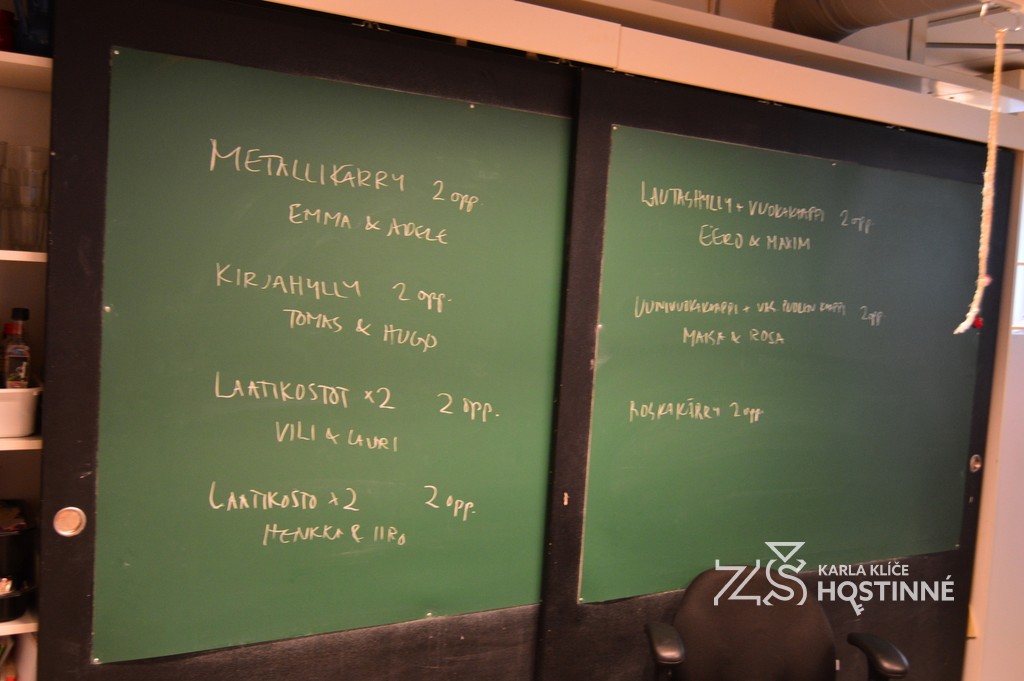 METALLIKÄRRY 2 opp.
EMMA & ADELE
KIRJAHYLLY 2 opp.
TOMAS & HUGO
LAATIKOSTOT x2 2 opp.
VILI & LAURI
LAATIKOSTO x2 2 opp.
HENKKA & IIRO
LAUTASHYLLY + VUOKAKAAPPI 2 opp.
EERO & MAXIM
UUNIVUOKAKAAPPI + PUOLEN KAAPPI 2 opp
MAISA & ROSA
ROSKAKÄRRY 2 opp
ZŠ KARLA KLÍČE
HOSTINNÉ